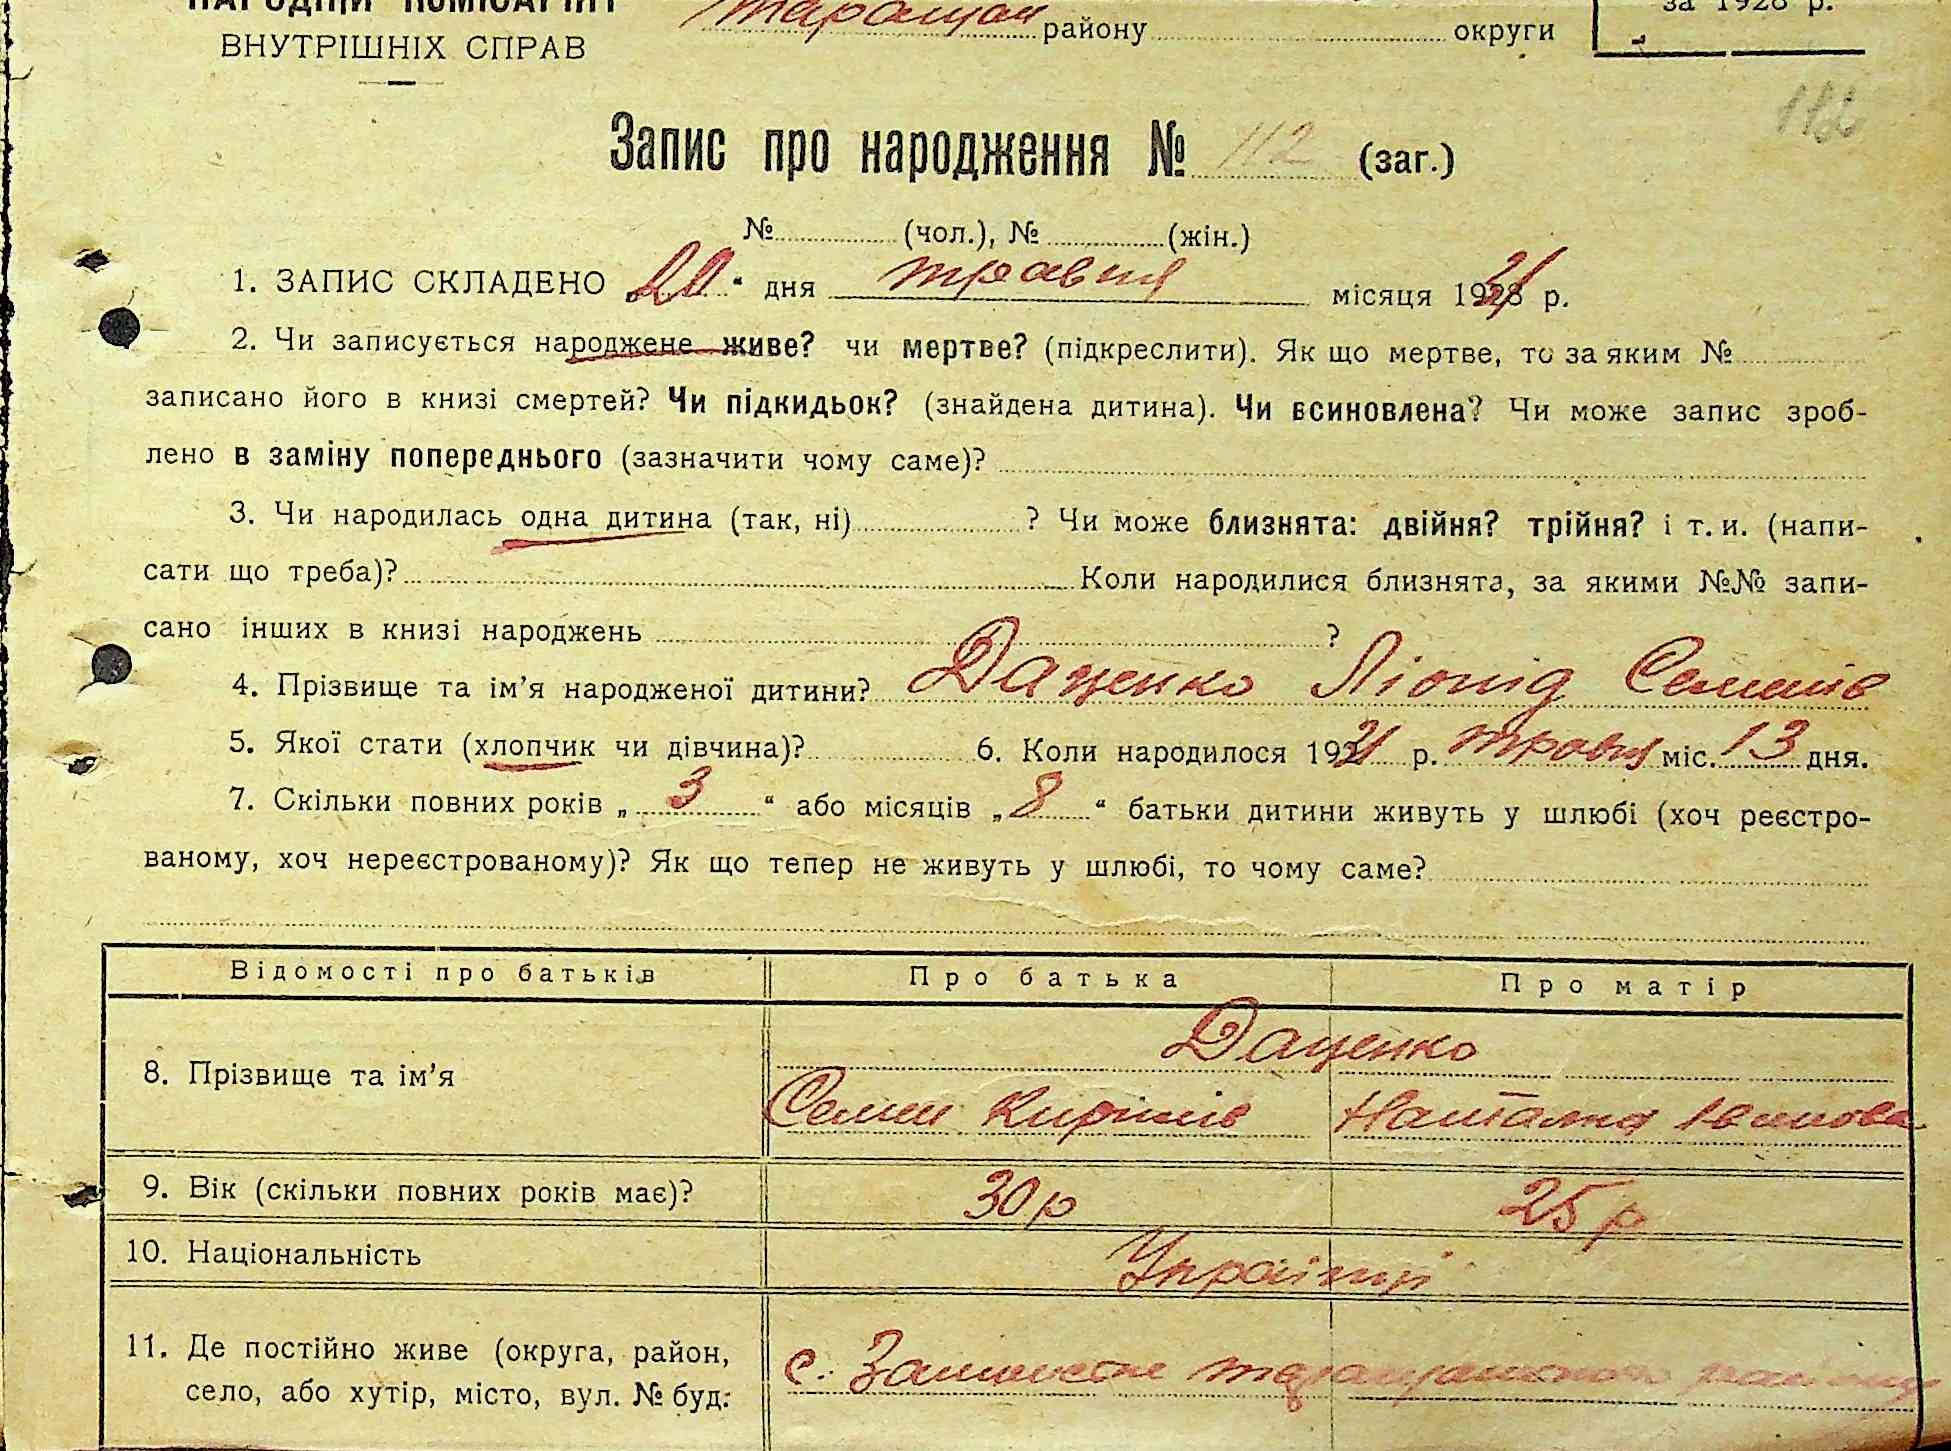 НАРОДНІЙ КОМІСАРІЯТ
ВНУТРІШНІХ СПРАВ
району округи
за 1928 р.
112
Запис про народження № 112 (заг.)
№ (чол.), № (жін.)
1. ЗАПИС СКЛАДЕНО 20 “ дня травня місяця 1931 р.
2. Чи записується народжене живе? чи мертве? (підкреслити). Як що мертве, то за яким №
записано його в книзі смертей? Чи підкидьок? (знайдена дитина). Чи всиновлена? Чи може запис зроб-
лено в заміну попереднього (зазначити чому саме)?
3. Чи народилась одна дитина (так, ні) ? Чи може близнята: двійня? трійня? і т. и. (напи-
сати що треба)? Коли народилися близнята, за якими №№ запи-
сано інших в книзі народжень ?
4. Прізвище та ім’я народженої дитини? Даценко Ліонід Семенів
5. Якої стати (хлопчик чи дівчина)? 6. Коли народилося 1931 р. травня міс. 13 дня.
7. Скільки повних років „ 3 “ або місяців „ 8 “ батьки дитини живуть у шлюбі (хоч реєстро-
ваному, хоч нереєстрованому)? Як що тепер не живуть у шлюбі, то чому саме?
Відомості про батьків Про батька Про матір
8. Прізвище та ім’я Даценко
Семен Кирилів Наталка Іванова
9. Вік (скільки повних років має)? 30 р 25 р
10. Національність Українці
11. Де постійно живе (округа, район,
село, або хутір, місто, вул. № буд:
с. району